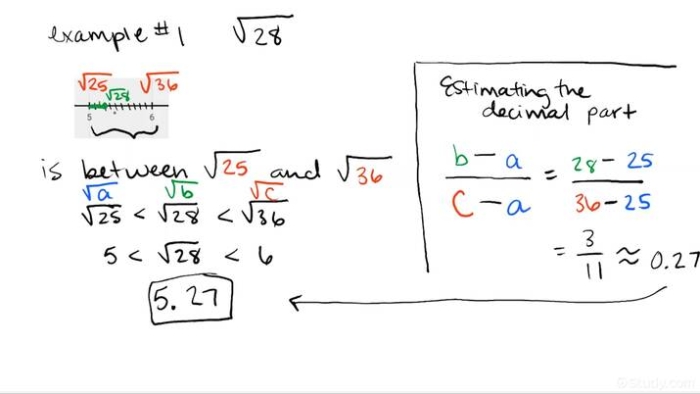 example #1 √28
√25 √36
√28
5 6
is between √25 and √36
√a √b √c
√25 < √28 < √36
5 < √28 < 6
5.27
Estimating the
decimal part
b - a = 28 - 25
c - a 36 - 25
= 3/11 ≈ 0.27
©Study.com